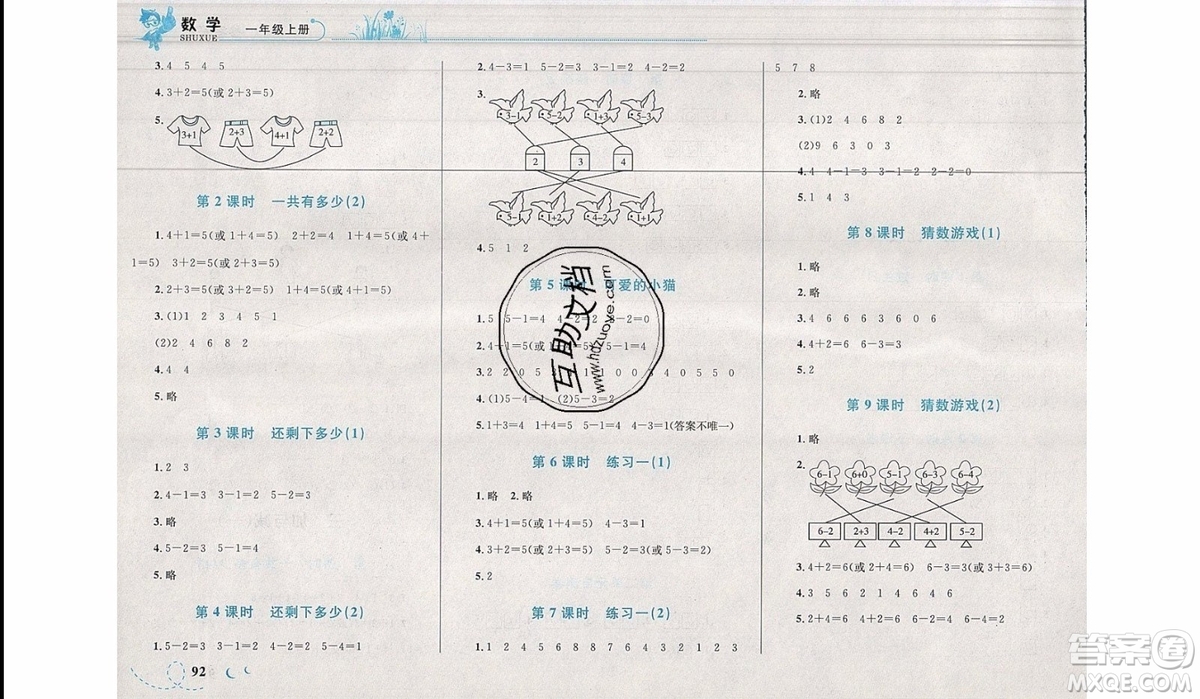 数学
SHUXUE
一年级上册
3.4 5 4 5
4.3+2=5(或2+3=5)
5.
3+1 2+3 4+1 2+2
第2课时 一共有多少(2)
1.4+1=5(或1+4=5) 2+2=4 1+4=5(或4+
1=5) 3+2=5(或2+3=5)
2.2+3=5(或3+2=5)
3.(1)1 2 3 4 5 1
(2)2 4 6 8 2
4.4 4
5.略
第3课时 还剩下多少(1)
1.2 3
2.4-1=3 3-1=2 5-2=3
3.略
4.5-2=3 5-1=4
5.略
第4课时 还剩下多少(2)
1.5-2=3 3-1=2 4-2=2
92
2.4-3=1 5-2=3 3-1=2 4-2=2
3.
3-1 5-2 1+3 5-3
2 3 4
5-1 1+2 4-2 4-1
4.5 1 2
第5课 可爱的小猫
1.5 5-1=4 4-2=2 5-5=0
2.4+1=5(或1+4=5) 5-1=4
3.2 2 0 5 2 1 1 0 0 3 4 0 5 5 0
4.(1)5-4=1 (2)5-3=2
5.1+3=4 1+4=5 5-4=1 4-3=1(答案不唯一)
第6课时 练习一(1)
1.略 2.略
3.4+1=5(或1+4=5) 4-3=1
4.2+3=5(或3+2=5) 5-2=3(或5-3=2)
5.2
第7课时 练习一(2)
1.1 3 5 2 4 1 2 3 4 5 6 7 8 9
5 7 8
2.略
3.(1)2 4 6 8 2
(2)9 6 3 0 3
4.4-1=3 1+2=3 2-2=0
5.1 4 3
第8课时 猜数游戏(1)
1.略
2.略
3.4 6 6 6 3 6 0 6
4.4+2=6 6-3=3
5.2
第9课时 猜数游戏(2)
1.略
2.
6-1 6+0 5-1 6-3 6-4
6-2 2+3 4-2 4+2 5-2
3.4+2=6(或2+4=6) 6-3=3(或3+3=6)
4.3 5 6 6 4 2
5.2+4=6 4+2=6 6-2=4 6-4=2
互助文档
www.hdzuoye.com
答案卷
MXQE.COM